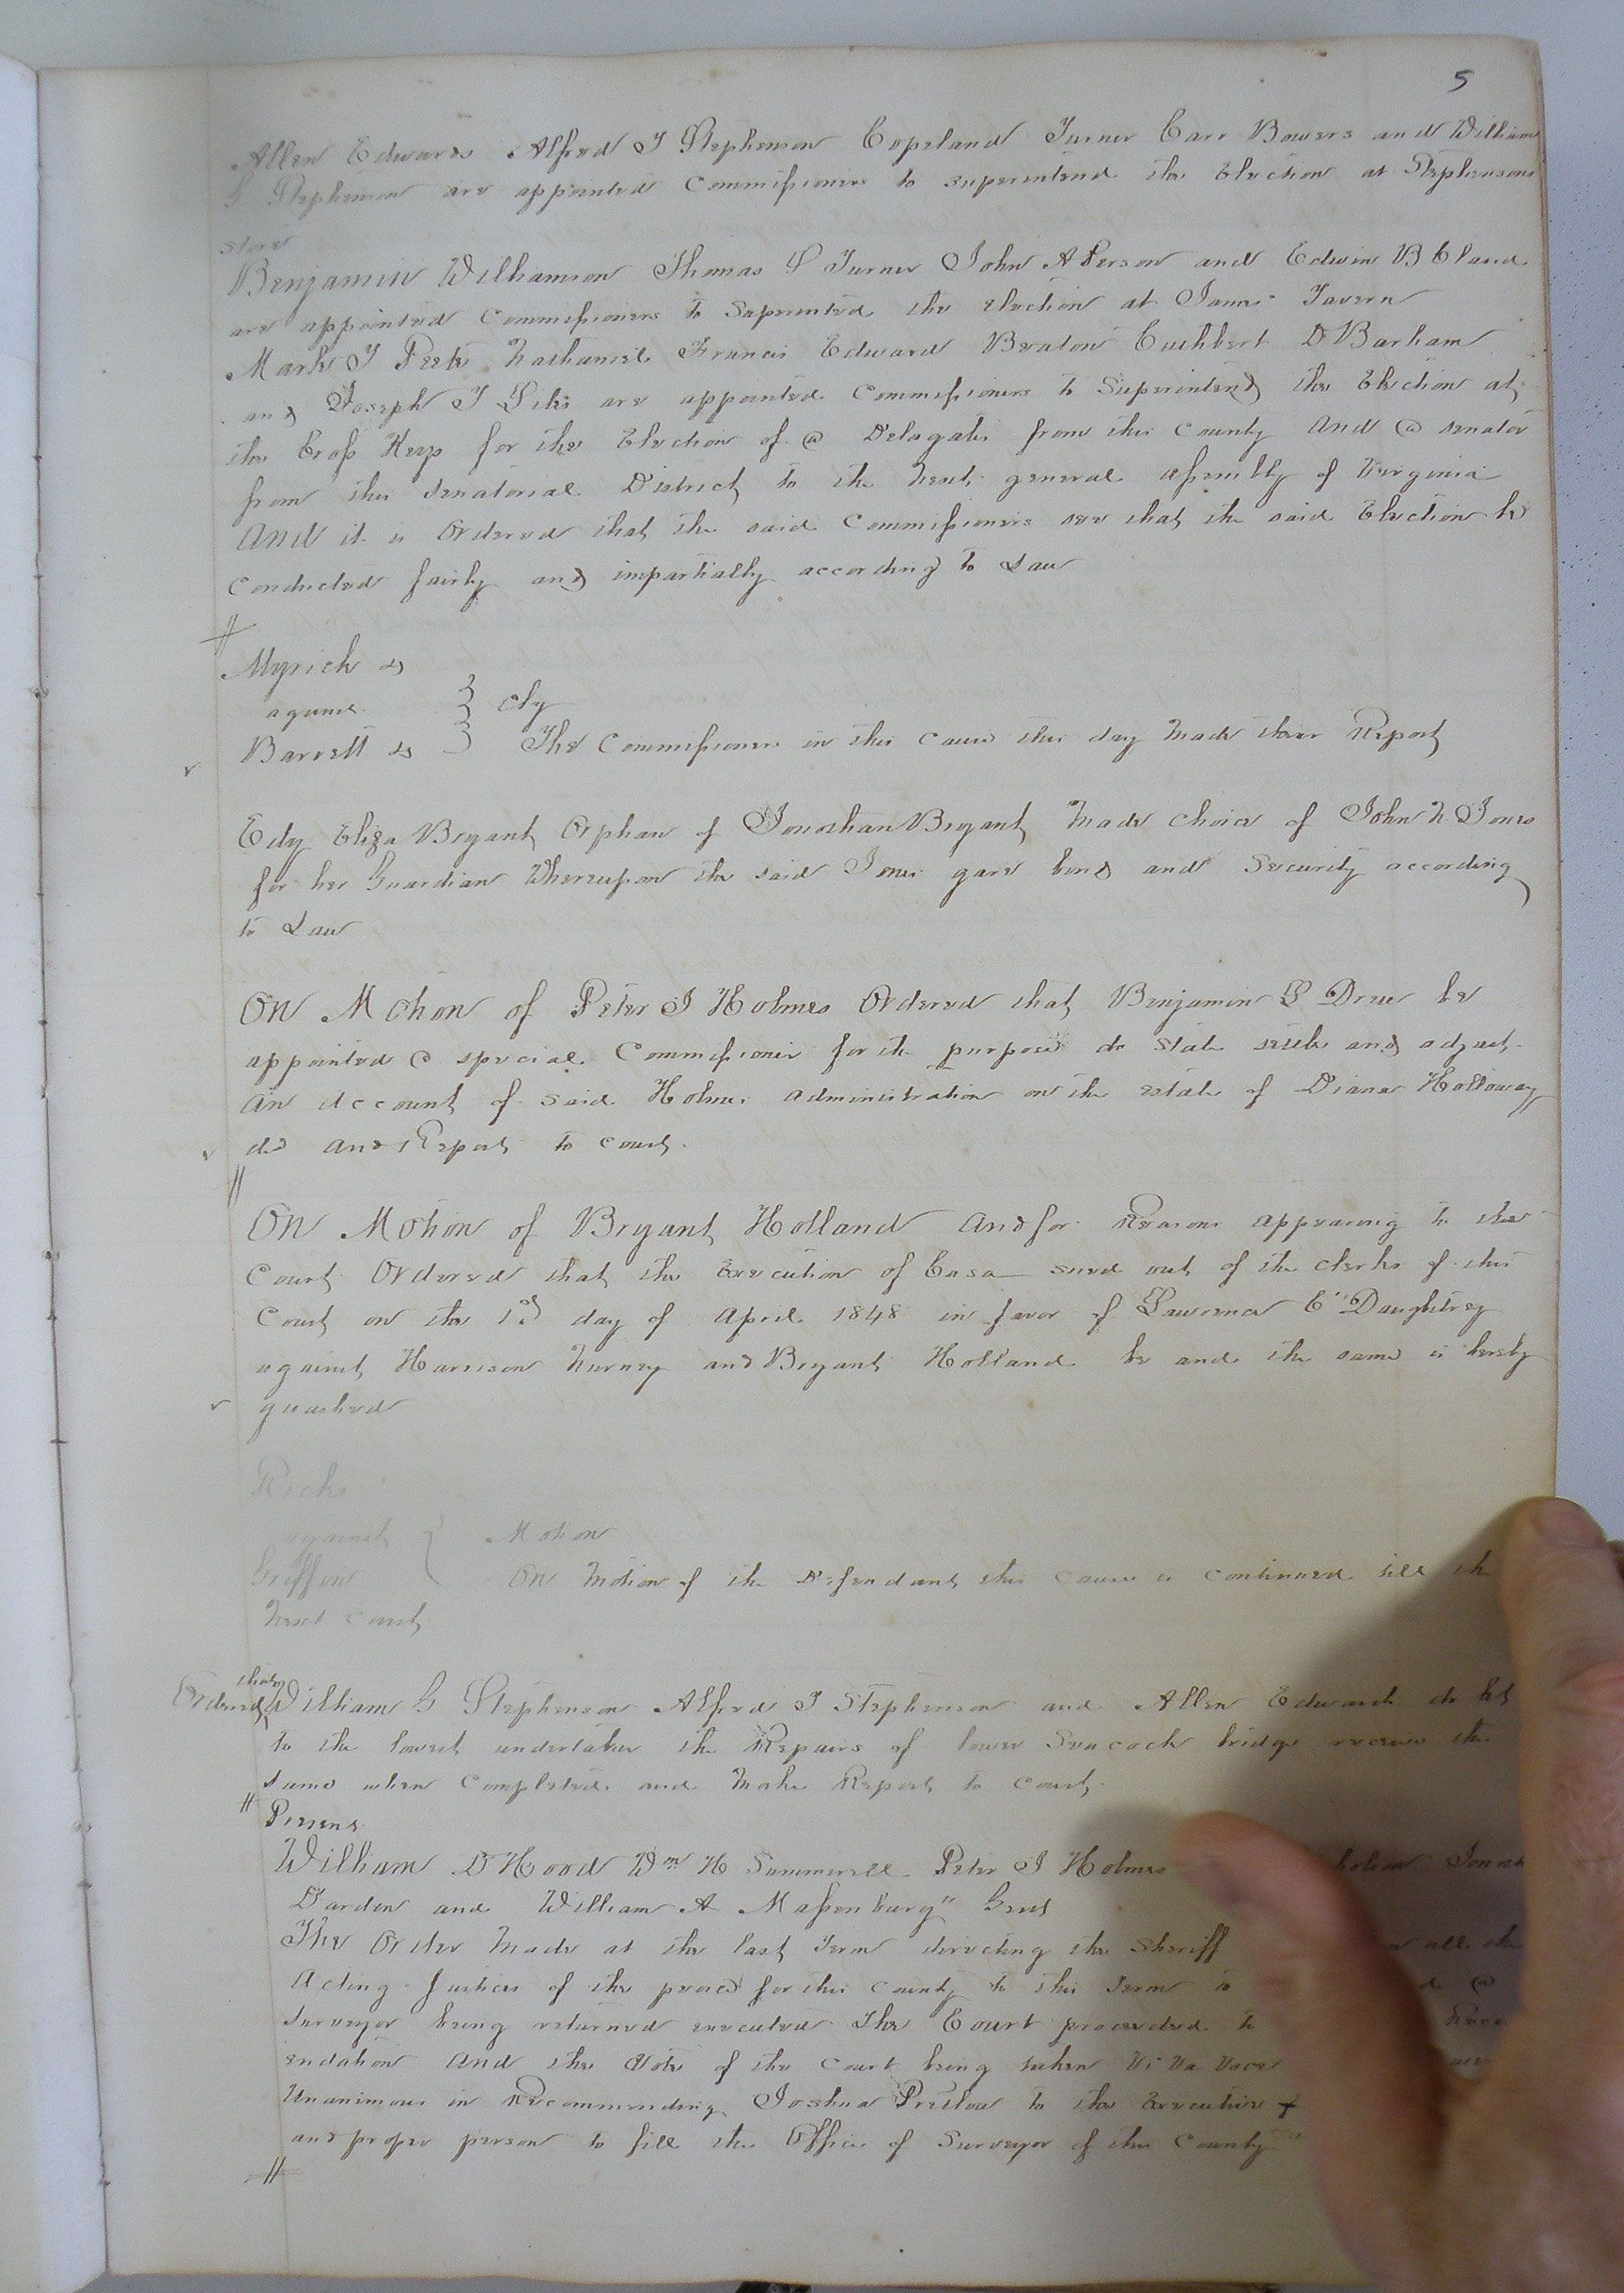 5
Allen Edwards Alfred J Stephenson Copeland Turner Carr Bowers and William
G Stephenson are appointed Commissioners to superintend the Election at Stephensons
store
Benjamin Williamson Thomas L Turner John A Person and Edwin B Claud
are appointed Commissioners to Saperinted the election at James Tavern
Mark J Peete Nathaniel Francis Edward Beaton Cuthbert D Barham
and Joseph J are appointed Commissioners to Superintend the Election at
the Cross Keys for the Election of a Delagate from this County and a senator
from this senatorial District to the next general assembly of Virginia
And it is Ordered that the said Commissioners see that the said Election be
Conducted fairly and impartially according to Law
Myrick &
against
Barrett &
} Chy
The Commissioners in this cause this day made their Report
Edy Eliza Bryant Orphan of Jonathan Bryant made choice of John N Jones
for her Guardian Whereupon the said Jones gave bond and Security according
to Law
On Motion of Peter J Holmes Ordered that Benjamin L Drew be
appointed a special Commissioner for the purpose do state settle and adjust
an account of said Holmes administration on the estate of Diana Holloway
dcd and Report to court
On Motion of Bryant Holland and for Reasons appearing to the
Court Ordered that the Execution of Casa sued out of the clerks of this
Court on the day of April 1848 in favor of Lawrence C Daughtrey
against Harrison Nurney and Bryant Holland be and the same is hereby
quashed
Ricks
against } Motion
Griffin On Motion of the Defendant this cause is continued till the
next court
Ordered that William G Stephenson Alfred J Stephenson and Allen Edwards do let
to the lowest undertaker the Repairs of lower Seacock bridge receive the
same when Completed and make Report to court
Present
William D Hood Wm H Summerell Peter J Holmes
Darden and William A Massenburg Gent
The Order made at the last Term directing the Sheriff all the
Acting Justices of the peace for this County to this Term to a
Surveyor being returned executed The Court proceeded to
endation and the Vote of the Court being taken Vi Va Voce
Unanimous in Recommending Joshua Pretlow to the Executive
and proper person to fill the Office of Surveyor of this County